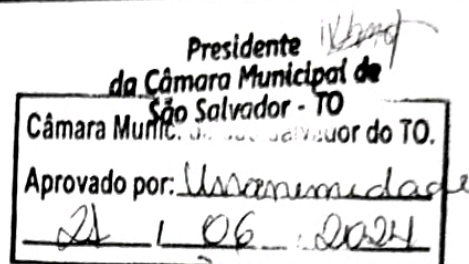 Presidente
da Câmara Municipal de
São Salvador - TO
Câmara Munic. do TO.
Aprovado por: Unanimidade
21 / 06 2024